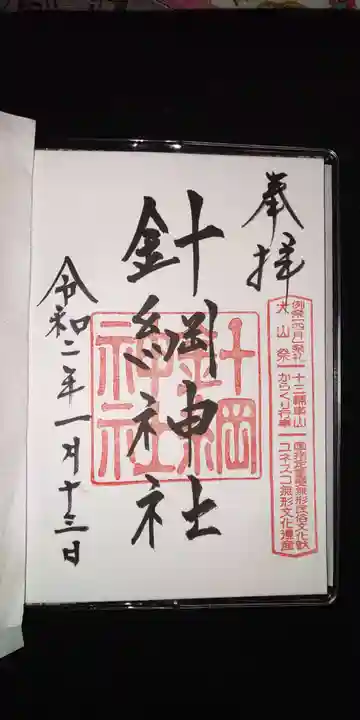 奉拝
例祭(四月)祭礼
犬山祭
十三輌車山
からくり行事
国指定重要無形民俗文化財
ユネスコ無形文化遺産
針綱神社
針綱神社
令和二年一月十三日